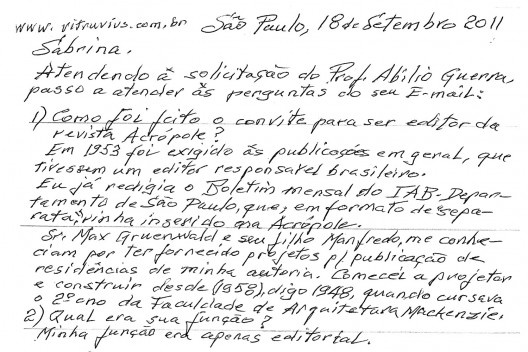 www.vitruvius.com.br São Paulo, 18 de Setembro 2011
Sabrina.
Atendendo à solicitação do Prof. Abílio Guerra,
passo a atender às perguntas do seu E-mail:
1) Como foi feito o convite para ser editor da
revista Acrópole?
Em 1953 foi exigido às publicações em geral, que
tivessem um editor responsavel brasileiro.
Eu já redigia o Boletim mensal do IAB-Depar-
tamento de São Paulo, que, em formato de sepa-
rata, vinha inserido na Acrópole.
Sr. Max Gruenwald e seu filho Manfredo, me conhe-
ciam por ter fornecido projetos p/ publicação de
residências de minha autoria. Comecei a projetar
e construir desde (1958), digo 1948, quando cursava
o 2º ano da Faculdade de Arquitetura Mackenzie.
2) Qual era sua função?
Minha função era apenas editorial.